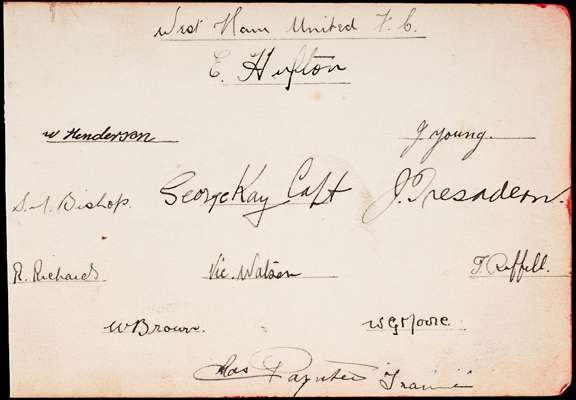 West Ham United F.C.
E. Hufton
W Henderson J Young.
S.A. Bishop. George Kay Capt J. Tresadern.
R. Richards. Vic. Watson T. Ruffell.
W Brown. W G Moore.
Chas Paynter Trainer